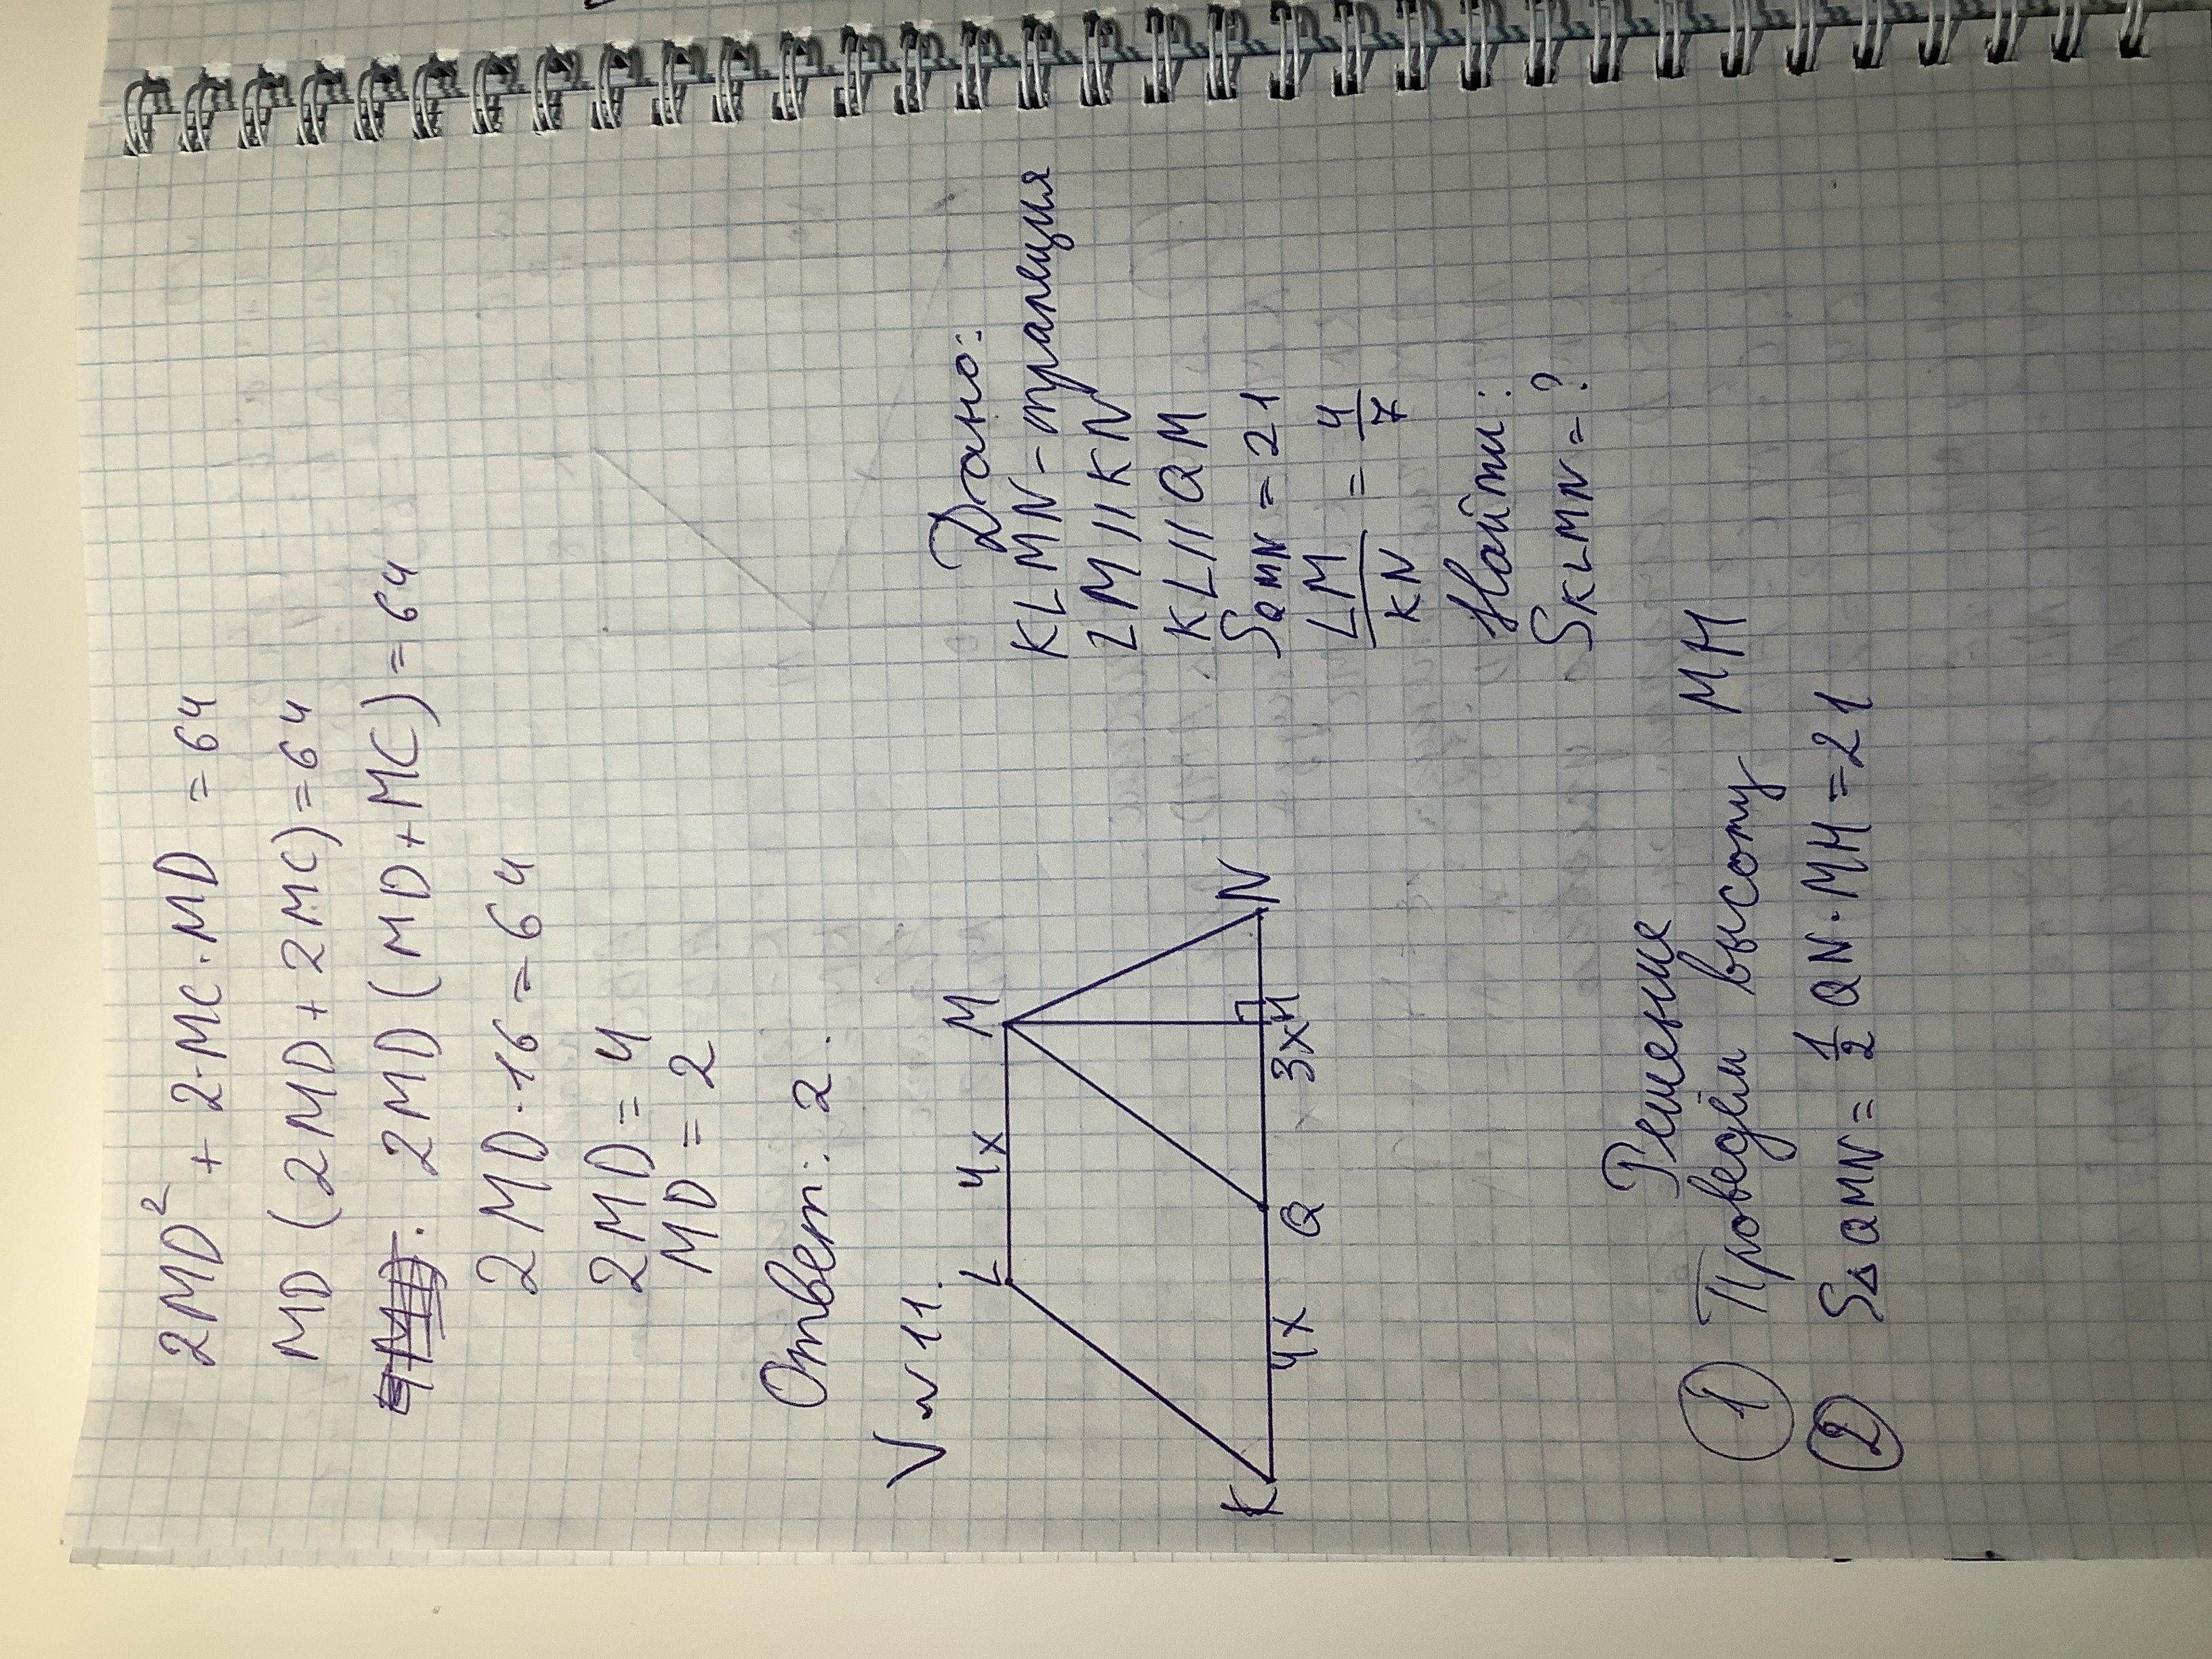 2MD² + 2·MC·MD = 64
MD (2MD + 2MC) = 64
2MD (MD + MC) = 64
2MD·16 = 64
2MD = 4
MD = 2
Ответ: 2.
V №11.
L 4x M
K 4x Q 3x H N
Дано:
KLMN – трапеция
LM || KN
KL || QM
S QMN = 21
LM/KN = 4/7
Найти:
S KLMN = ?
Решение
1 Проведём высоту MH
2 S△QMN = 1/2 QN·MH = 21